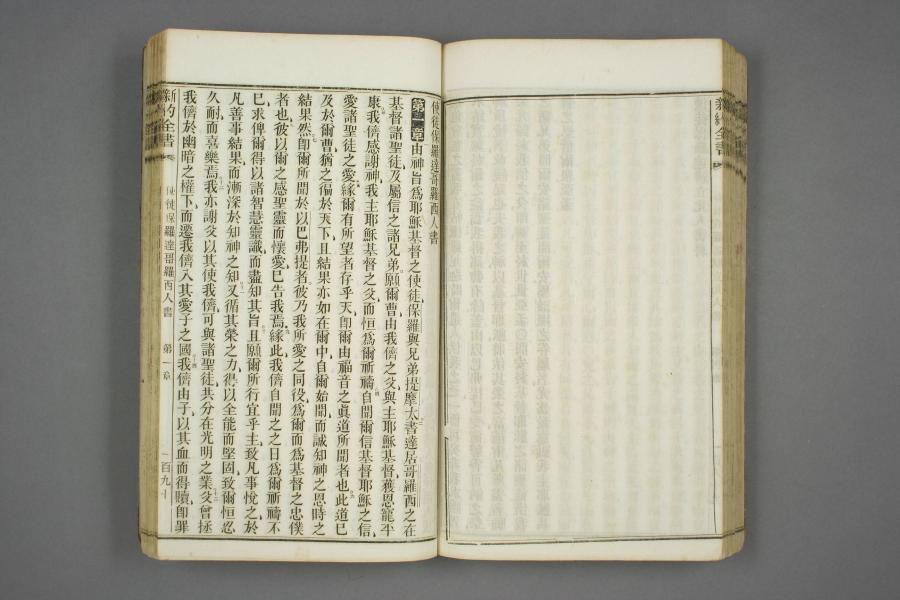 使徒保羅達哥羅西人書
第一章由神旨爲耶穌基督之使徒保羅與兄弟提摩太書達居哥羅西之在
基督諸聖徒及屬信之諸兄弟願爾曹由我儕之父與主耶穌基督獲恩寵平
康我儕感謝神我主耶穌基督之父而恒爲爾祈禱自聞爾信基督耶穌之信
愛諸聖徒之愛緣爾有所望者存乎天卽爾由福音之眞道所聞者也此道已
及於爾曹猶之徧於天下且結果亦如在爾中自爾始聞而誠知神之恩時之
結果然卽爾所聞於以巴弗提者彼乃我所愛之同役爲爾而爲基督之忠僕
者也彼以爾之感聖靈而懷愛已告我焉緣此我儕自聞之之日爲爾祈禱不
已求俾爾得以諸智慧靈識而盡知其旨且願爾所行宜乎主致凡事悅之於
凡善事結果而漸深於知神之知又循其榮之力得以全能而堅固致爾恒忍
久耐而喜樂焉我亦謝父以其使我儕可與諸聖徒共分在光明之業父曾拯
我儕於幽暗之權下而遷我儕入其愛子之國我儕由子以其血而得贖卽罪
新約全書
使徒保羅達哥羅西人書
第一章
一百九十
新約全書